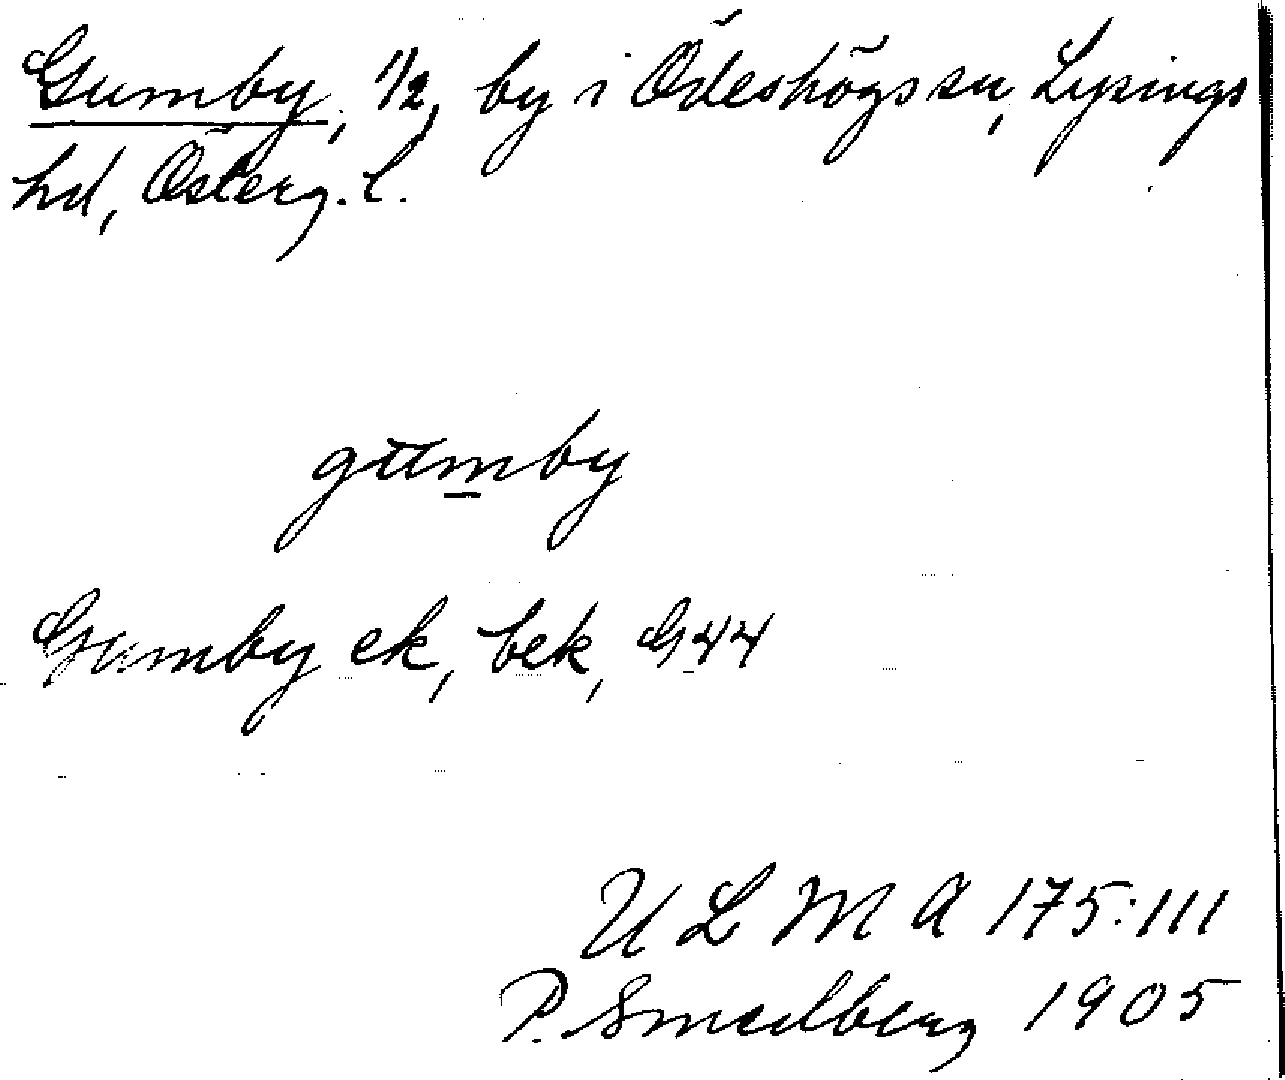 Gumby, 1/2, by i Ödeshögs sn, Lysings
hd, Österg. l.
gumby
Gumby ek, bek, G44
U L M A 175:111
P. Smedberg 1905